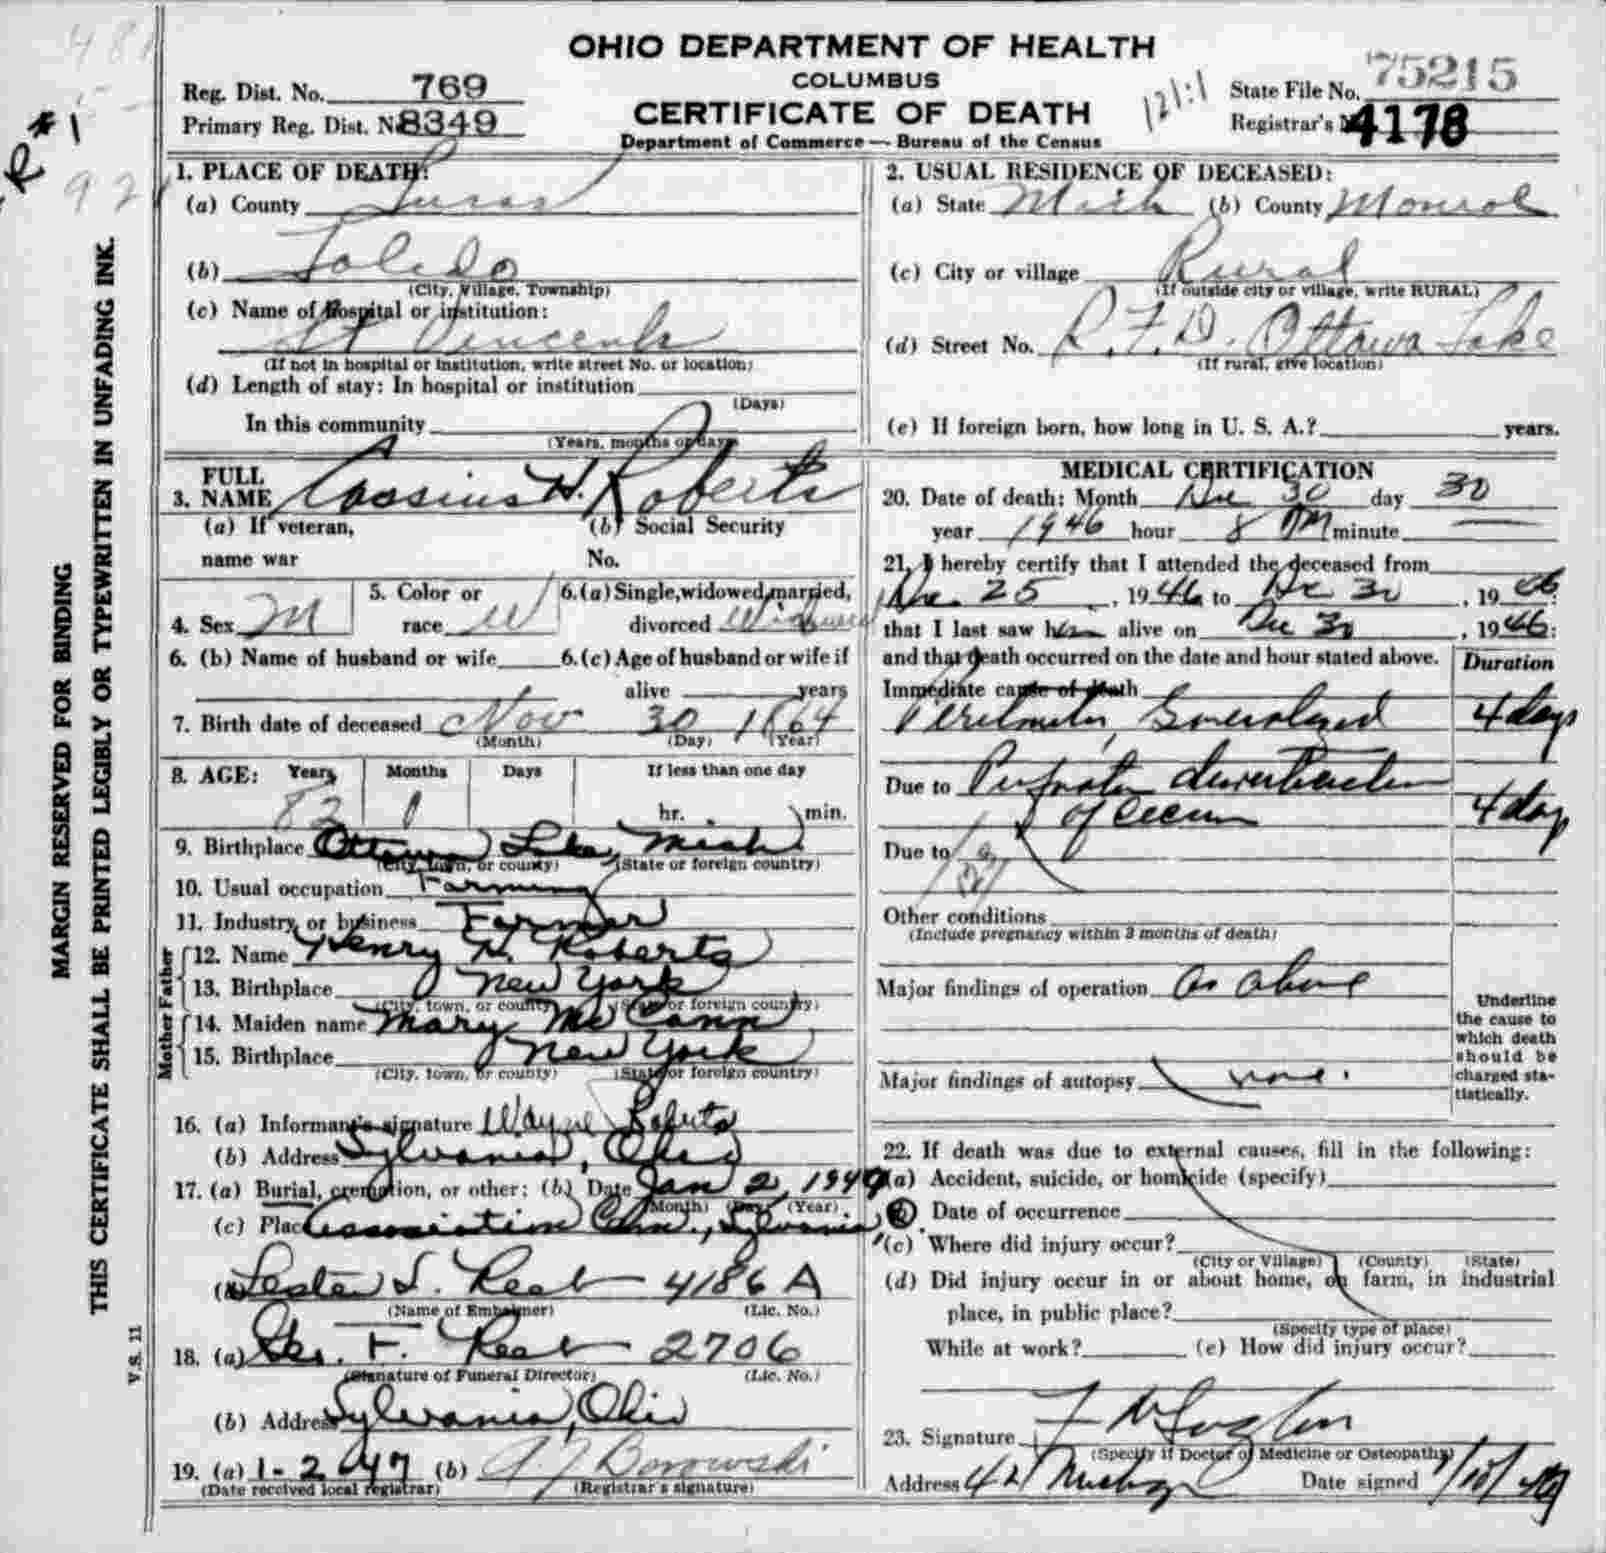 OHIO DEPARTMENT OF HEALTH
COLUMBUS
CERTIFICATE OF DEATH
Department of Commerce — Bureau of the Census
Reg. Dist. No. 769
Primary Reg. Dist. No. 8349
State File No. 75215
Registrar's No. 4178
R #1
121:1
MARGIN RESERVED FOR BINDING
THIS CERTIFICATE SHALL BE PRINTED LEGIBLY OR TYPEWRITTEN IN UNFADING INK.
V.S. 11
1. PLACE OF DEATH:
(a) County Lucas
(b) Toledo
(City, Village, Township)
(c) Name of Hospital or institution:
St Vincents
(If not in hospital or institution, write street No. or location)
(d) Length of stay: In hospital or institution
(Days)
In this community
(Years, months or days)
2. USUAL RESIDENCE OF DECEASED:
(a) State Mich (b) County Monroe
(c) City or village Rural
(If outside city or village, write RURAL)
(d) Street No. R.F.D. Ottawa Lake
(If rural, give location)
(e) If foreign born, how long in U. S. A.? years.
3. FULL NAME Cassius H. Roberts
(a) If veteran, name war
(b) Social Security No.
4. Sex M
5. Color or race W
6. (a) Single, widowed, married, divorced Widowed
6. (b) Name of husband or wife
6. (c) Age of husband or wife if alive years
7. Birth date of deceased Nov 30 1864
(Month) (Day) (Year)
8. AGE: Years Months Days If less than one day
82 1 hr. min.
9. Birthplace Ottawa Lake, Mich.
(City, town, or county) (State or foreign country)
10. Usual occupation Farming
11. Industry or business Farmer
Father
12. Name Henry H. Roberts
13. Birthplace New York
(City, town, or county) (State or foreign country)
Mother
14. Maiden name Mary McCann
15. Birthplace New York
(City, town, or county) (State or foreign country)
16. (a) Informant's signature Wayne Roberts
(b) Address Sylvania, Ohio
17. (a) Burial, cremation, or other: (b) Date Jan 2, 1947
(Month) (Day) (Year)
(c) Place Association Cem., Sylvania, O.
Lester S. Reeb 4186 A
(Name of Embalmer) (Lic. No.)
18. (a) Geo. F. Reeb 2706
(Signature of Funeral Director) (Lic. No.)
(b) Address Sylvania, Ohio
19. (a) 1-2 47 (b) A J Borowski
(Date received local registrar) (Registrar's signature)
MEDICAL CERTIFICATION
20. Date of death: Month Dec 30 day 30
year 1946 hour 8 PM minute
21. I hereby certify that I attended the deceased from
Dec. 25, 1946 to Dec 30, 1946:
that I last saw him alive on Dec 30, 1946:
and that death occurred on the date and hour stated above.
Duration
Immediate cause of death
Peritonitis, Generalized 4 days
Due to Perforation diverticulum
of cecum 4 day
Due to
Other conditions
(Include pregnancy within 3 months of death)
Major findings of operation As above
Major findings of autopsy none.
Underline the cause to which death should be charged statistically.
22. If death was due to external causes, fill in the following:
(a) Accident, suicide, or homicide (specify)
(b) Date of occurrence
(c) Where did injury occur?
(City or Village) (County) (State)
(d) Did injury occur in or about home, on farm, in industrial
place, in public place?
(Specify type of place)
While at work? (e) How did injury occur?
23. Signature
(Specify if Doctor of Medicine or Osteopathy)
Address Date signed 1/10/47